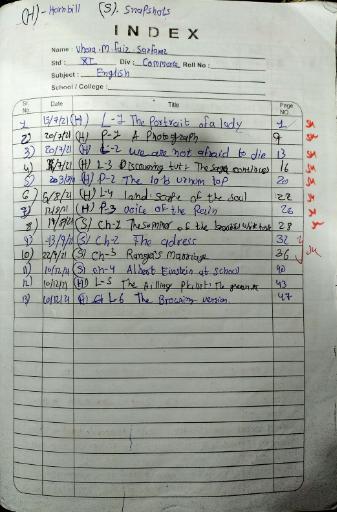 (H)- Hornbill (S). Snapshots
INDEX
Name: Vhora. M. Faiz Sarfaraz
Std: XI Div: Commerce Roll No:
Subject: English
School / College:
Sr. No. Date Title Page No
1 15/7/21 (H) L-1 The Portrait of a lady 1
2) 20/7/21 (H) P-1 A Photograph 9
3) 20/7/21 (H) L-2 we are not afraid to die 13
4) /7/21 (H) L-3 Discovering tut: The saga continues 16
5) (H) P-2 The top 20
6 5/8/21 (H) L-4 Landscape of the soul 22
7) (H) P-3 voice of the Rain 26
8) (S) Ch-1 The summer of the beautiful white horse 28
9) 13/9/21 (S) Ch-2 The adress 32
10) 22/9/21 (S) Ch-3 Ranga's Marriage 36
11) 10/12/21 (S) ch-4 Albert Einstein at school 40
12) 10/12/21 (H) L-5 The Ailing Planet: The 43
13) 10/12/21 (H) L-6 The Browning version. 47